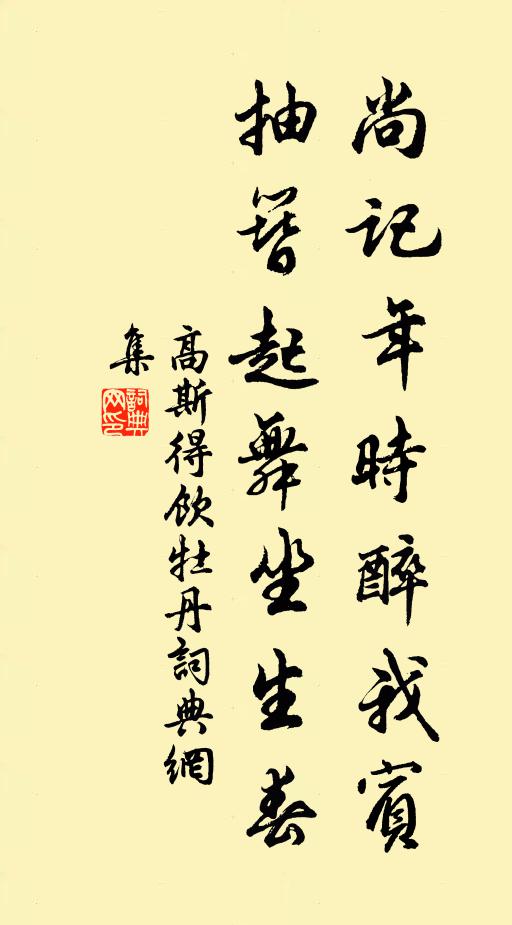 尚记年時醉我賓
抽簪起舞坐生春
高斯得飲牡丹詞典網
集
詞典
网印